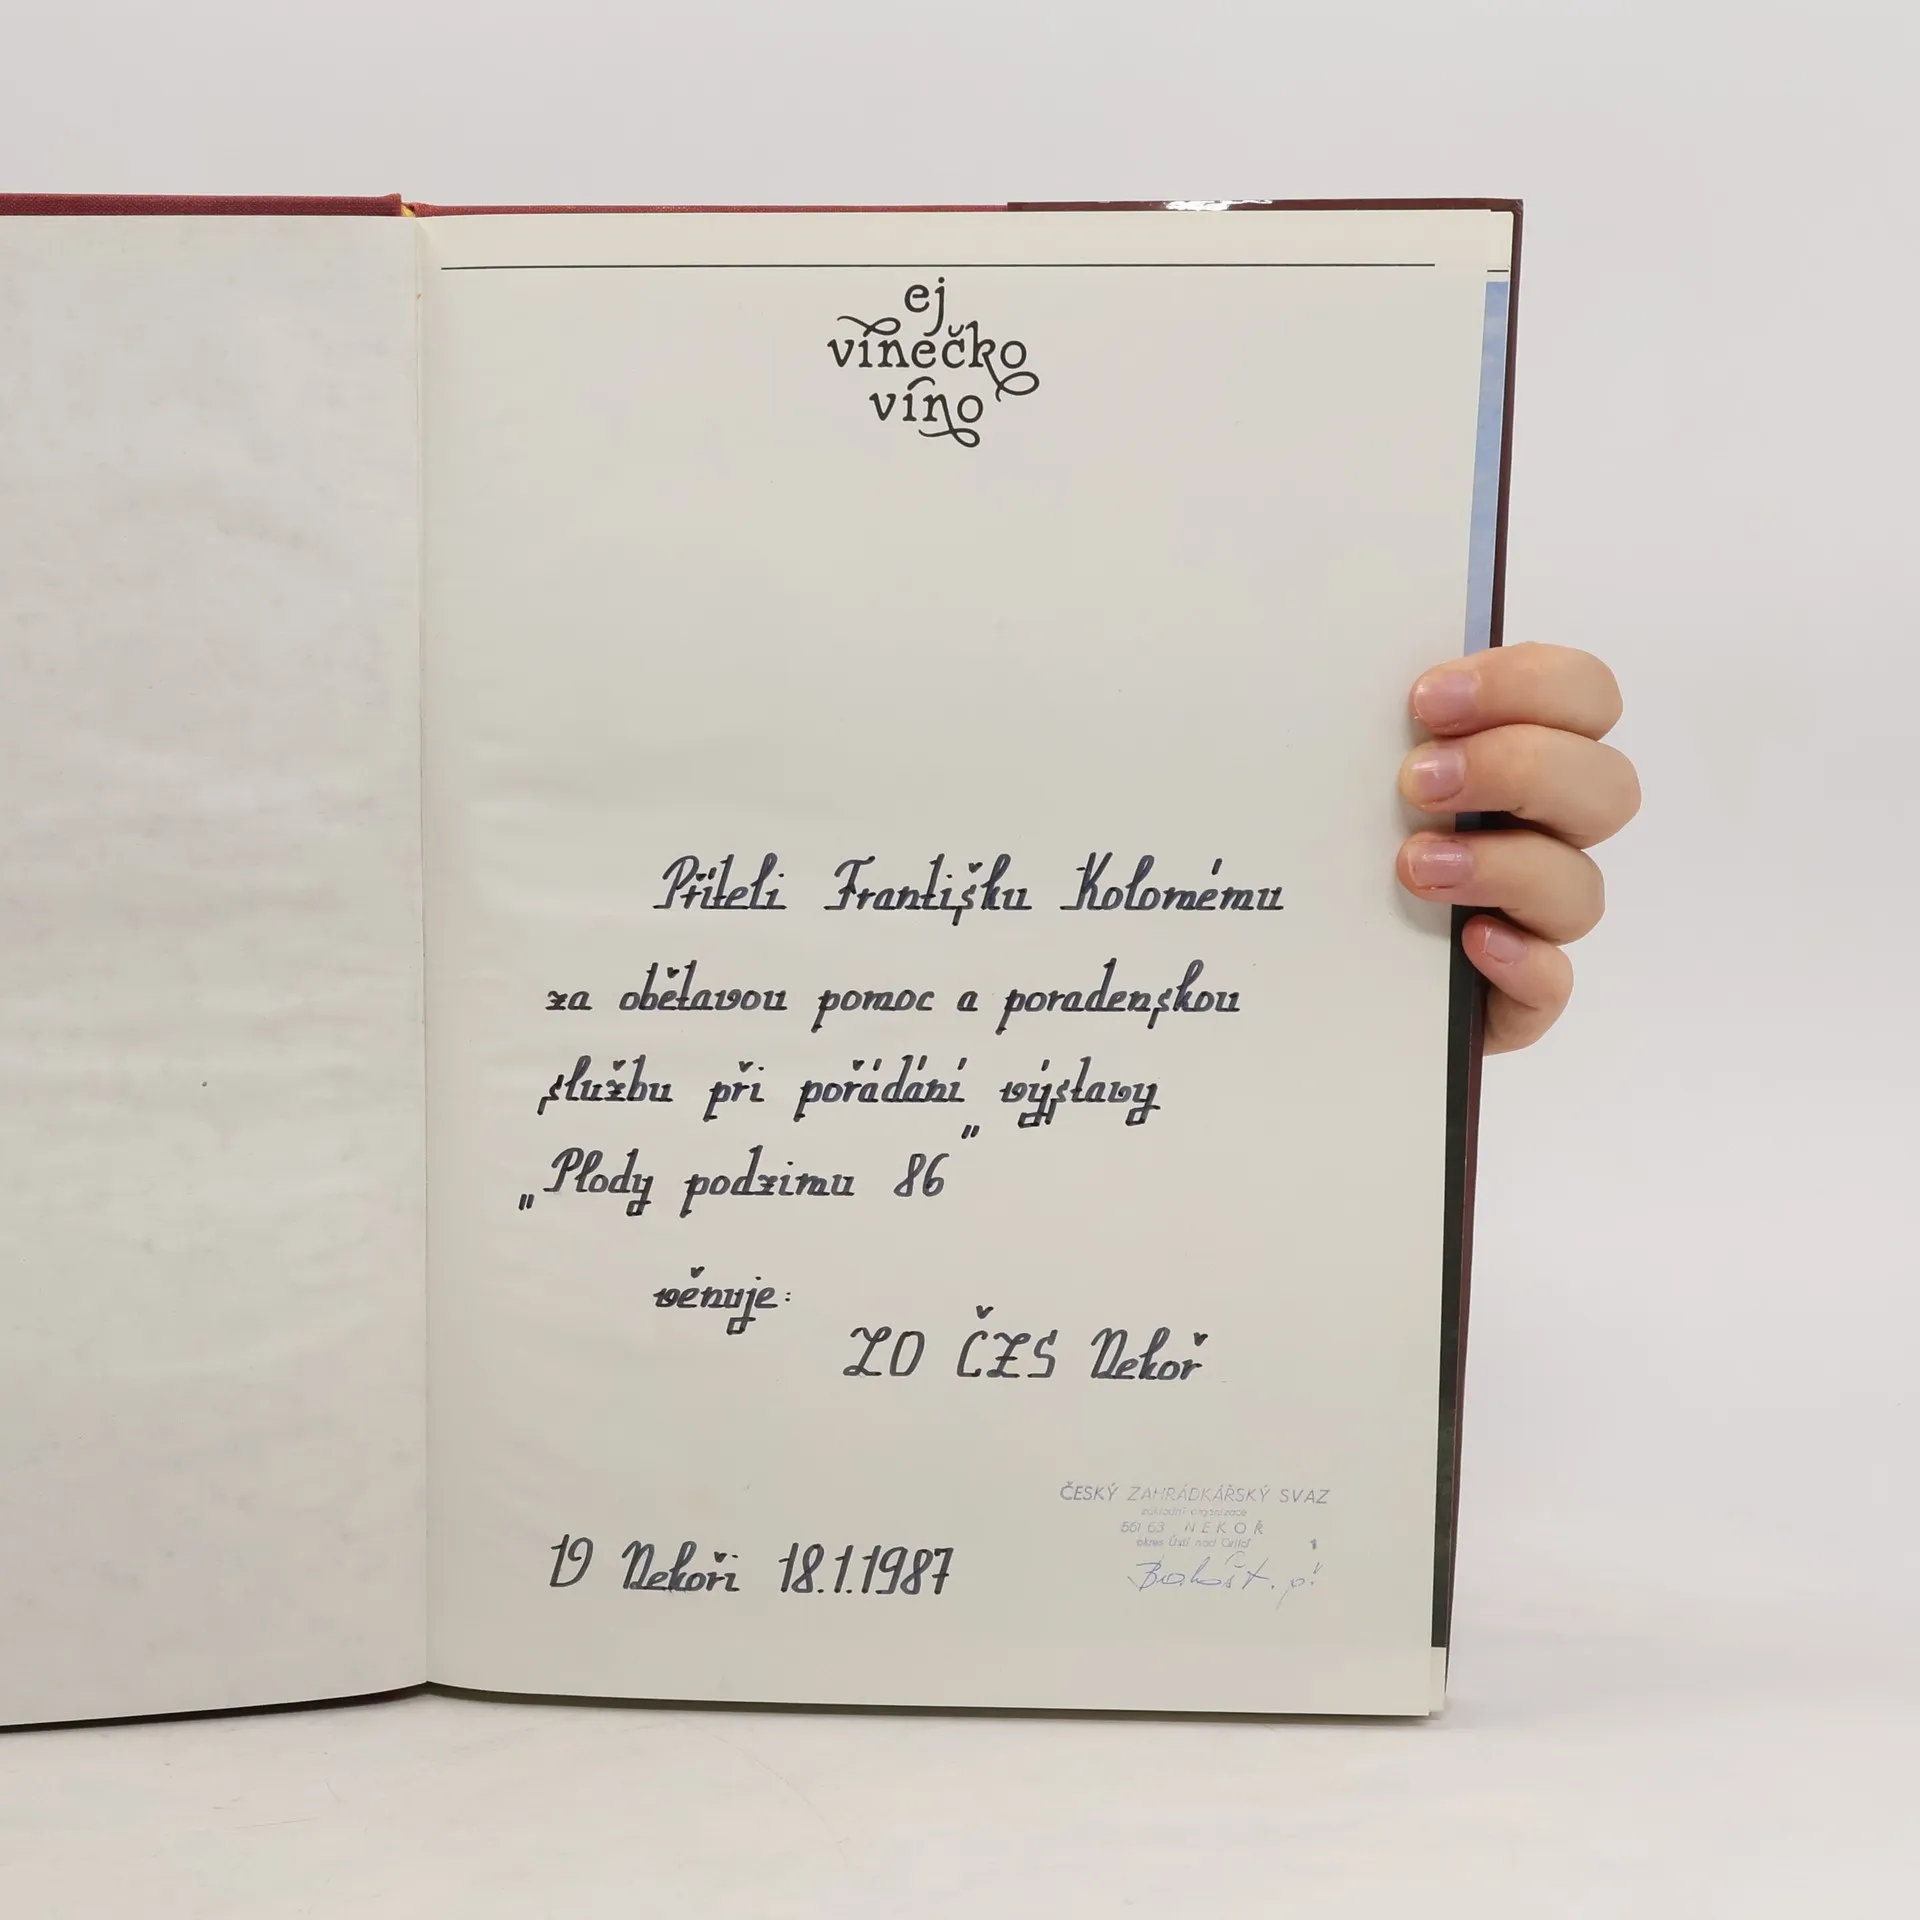 ej
vínečko
víno
Příteli Františku Kolomému
za obětavou pomoc a poradenskou
službu při pořádání výstavy
„Plody podzimu 86"
věnuje:
ZO ČZS Nekoř
ČESKÝ ZAHRÁDKÁŘSKÝ SVAZ
základní organizace
561 63 NEKOŘ
okres Ústí nad Orlicí 1
V Nekoři 18.1.1987